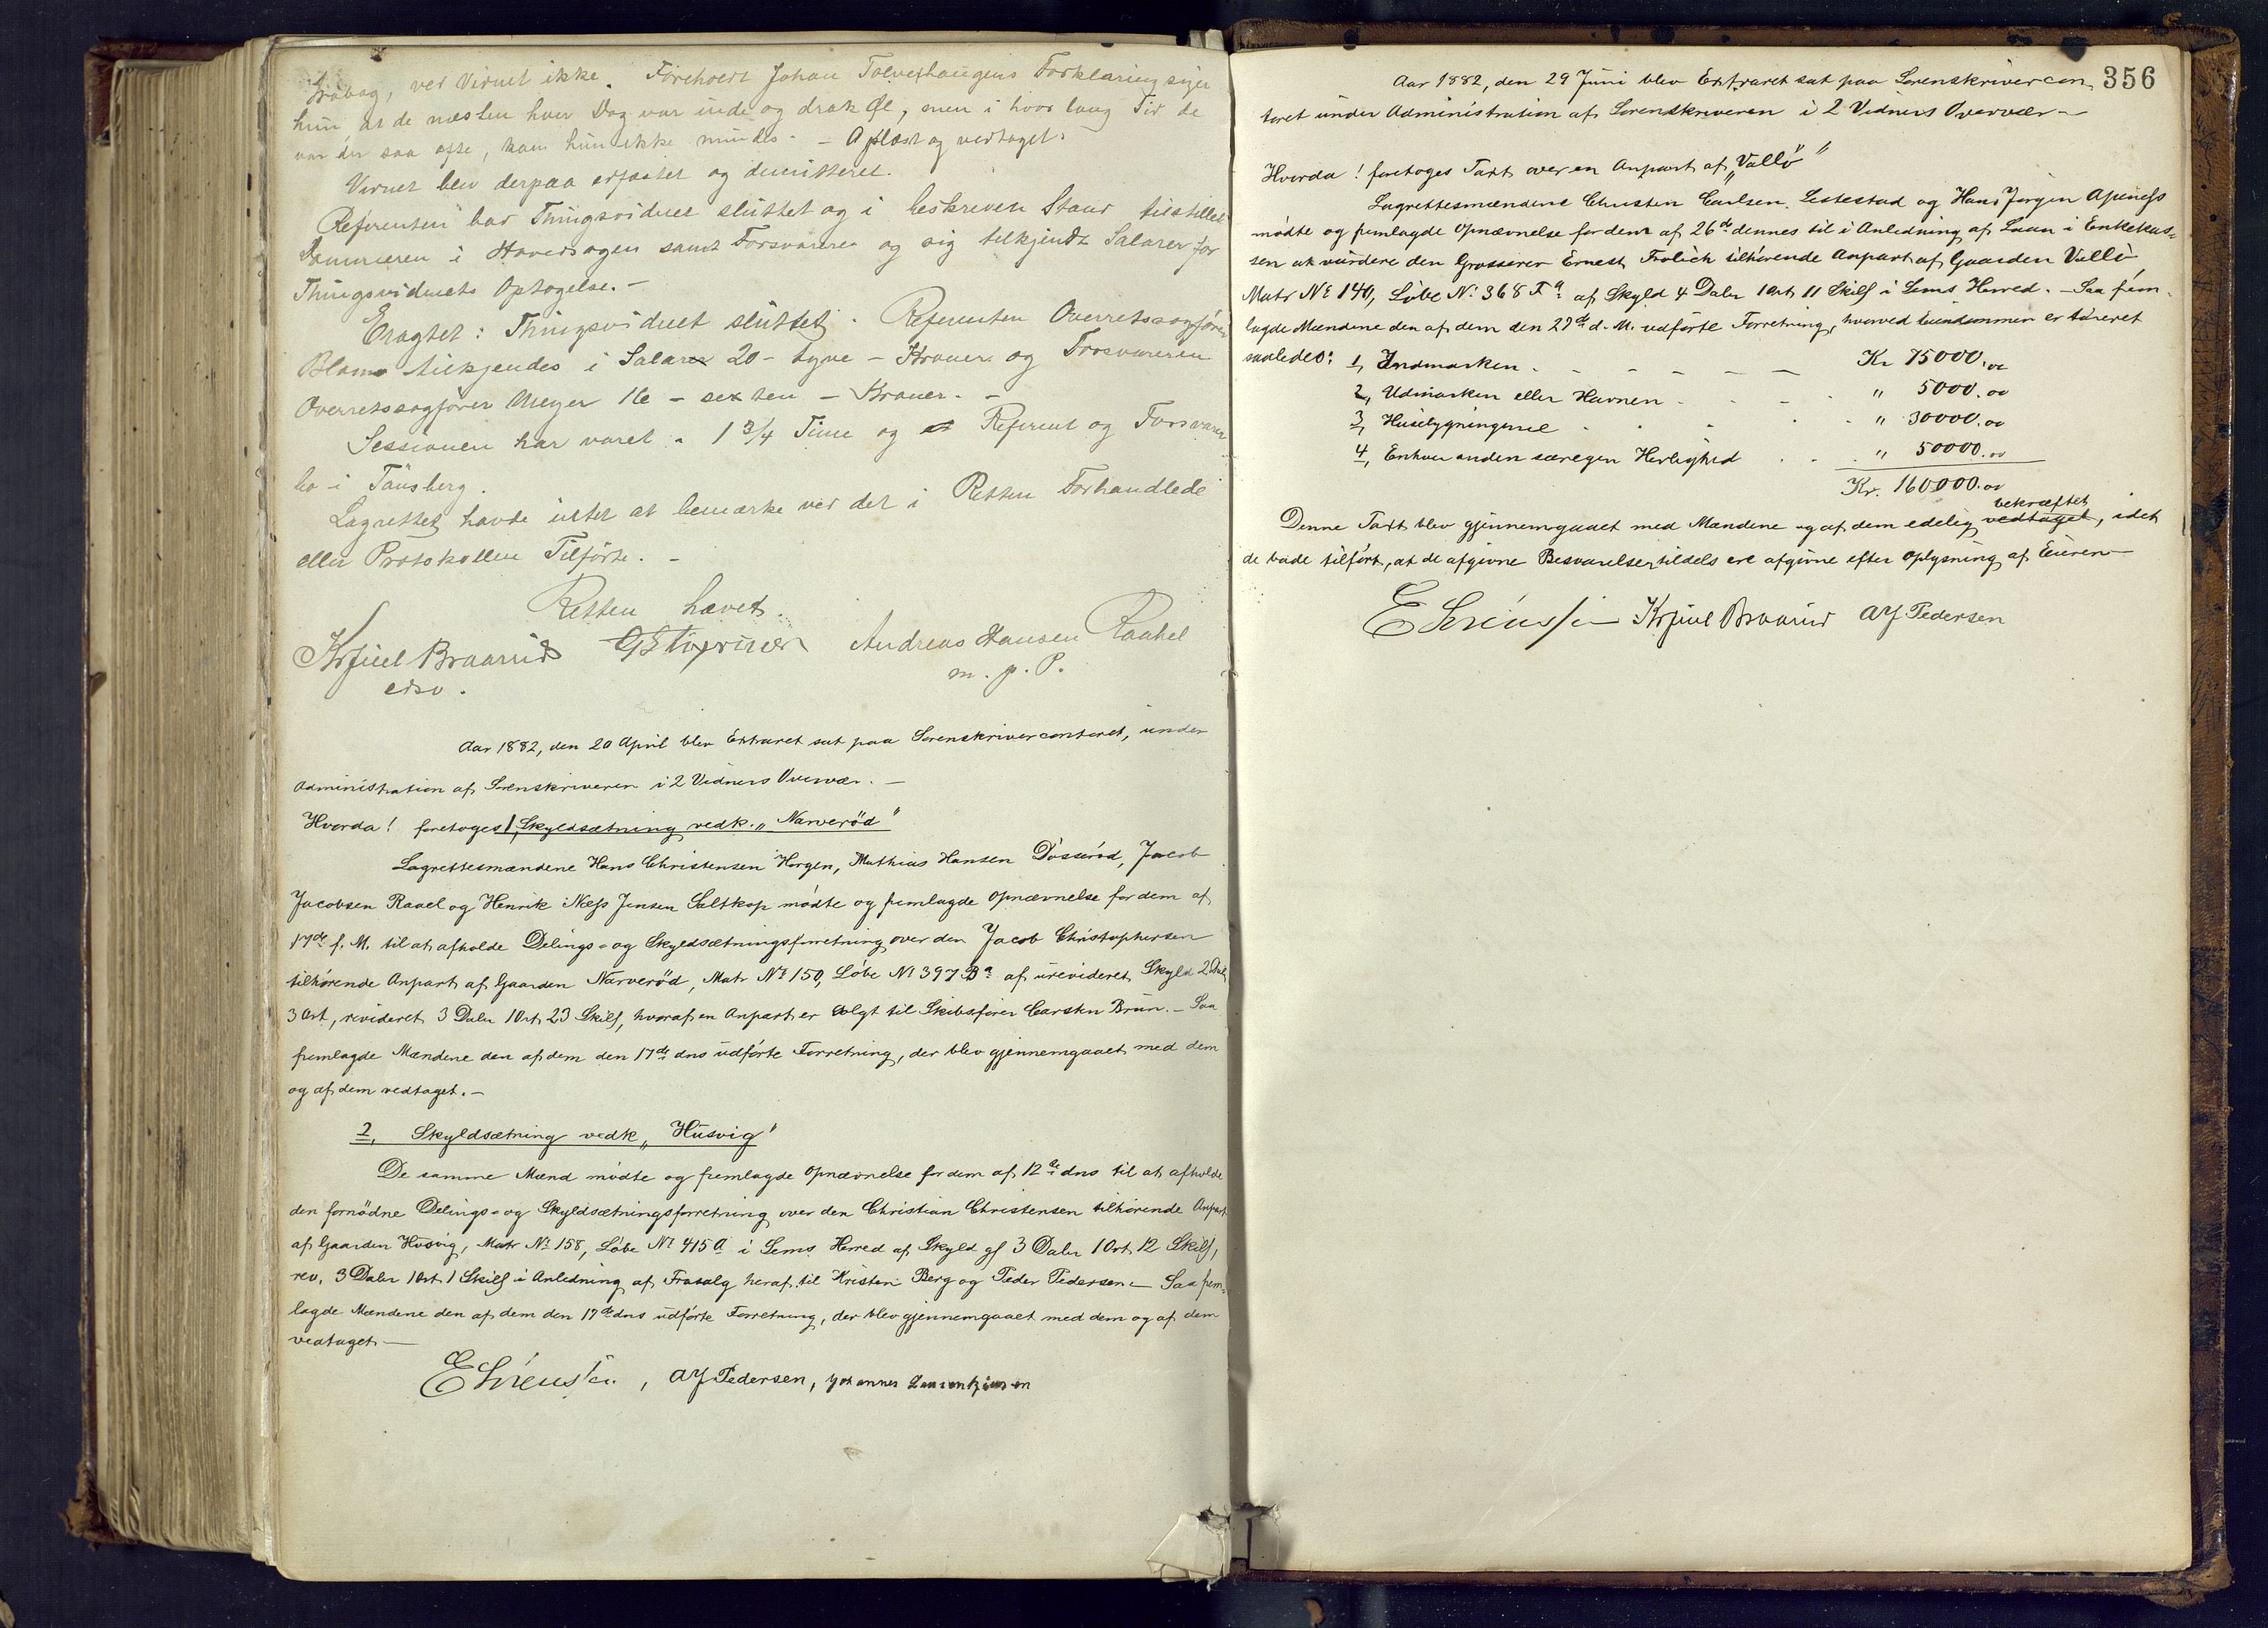 Grabog, ved Vidnet ikke. Foreholdt Johan Tolvethaugens Forklaring siger
hun at de næsten hver Dag var inde og drak Øl, men i hvor lang Tid de
var der saa ofte, kan hun ikke mindes. - Oplæst og vedtaget.
Vidnet blev derpaa erfastet og dimitteret.
Referenten bad Thingsvidnet sluttet og i beskreven Stand tilstillet
Dommeren i Hovedsagen samt Forsvareren og sig tilkjendt Salarer for
Thingsvidnets Optagelse. -
Eragtet: Thingsvidnet sluttet. Referenten Overretssagfører
Blom tilkjendes i Salarer 20 - tyve - Kroner og Forsvareren
Overretssagfører Meyer 16 - sexten - Kroner. -
Sessionen har varet 1 3/4 Time og Referent og Forsvarer
bo i Tønsberg.
Lagrettet havde intet at bemærke ved det i Retten Forhandlede
eller Protokollen Tilførte. -
Retten hævet.
Kr Juel Braarud Andreas Hansen Raahel
m. p. P.
Aar 1882, den 20 April blev Extraret sat paa Sorenskrivercontoret, under
Administration af Sorenskriveren i 2 Vidners Overvær. -
Hvorda! foretoges 1, Skyldsætning vedk. „Narverød"
Lagrettesmændene Hans Christensen Horgen, Mathias Hansen Døsserød, Jacob
Jacobsen Raael og Henrik Næss Jensen Saltkop mødte og fremlagde Opnævnelse for dem af
17de f. M. til at afholde Delings- og Skyldsætningsforretning over den Jacob Christophersen
tilhørende Anpart af Gaarden Narverød, Matr No 150, Løbe No 397 Ba af urevideret Skyld 2 Daler
3 Ort, revideret 3 Daler 1 Ort 23 Skill, hvoraf en Anpart er solgt til Skibsfører Carsten Brun. - Saa
fremlagde Mændene den af dem den 17de dns udførte Forretning, der blev gjennemgaaet med dem
og af dem vedtaget. -
2, Skyldsætning vedk „Husvig"
De samme Mænd mødte og fremlagde Opnævnelse for dem af 12te dns til at afholde
den fornødne Delings- og Skyldsætningsforretning over den Christian Christensen tilhørende Anpart
af Gaarden Husvig, Matr No 158, Løbe No 415a i Sems Herred af Skyld gl 3 Daler 1 Ort 12 Skill,
rev. 3 Daler 1 Ort 1 Skill i Anledning af Frasalg heraf til Kristen Berg og Peder Pedersen. - Saa frem-
lagde Mændene den af dem den 17de dns udførte Forretning, der blev gjennemgaaet med dem og af dem
vedtaget. -
E Sørenssen, AJ Pedersen, Johannes Laurentziussen
356
Aar 1882, den 29 Juni blev Extraret sat paa Sorenskrivercon-
toret under Administration af Sorenskriveren i 2 Vidners Overvær -
Hvorda! foretoges Taxt over en Anpart af „Vallø"
Lagrettesmændene Christen Carlsen Lestestad og Hans Jørgen Apeness
mødte og fremlagde Opnævnelse for dem af 26de dennes til i Anledning af Laan i Enkekas-
sen at vurdere den Grosserer Ernest Frølich tilhørende Anpart af Gaarden Vallø
Matr No 140, Løbe No 368 Fa af Skyld 4 Daler 1 Ort 11 Skill i Sems Herred. - Saa frem-
lagde Mændene den af dem den 27de d. M. udførte Forretning, hvorved Eiendommen er taxeret
saaledes: 1, Indmarken - - - - - Kr 75000.00
2, Udmarken eller Havnen - - - - " 5000.00
3, Husebygningerne . . . . " 30000.00
4, Enhver anden særegen Herlighed . . . " 50000.00
Kr. 160000.00
bekræftet
Denne Taxt blev gjennemgaaet med Mændene og af dem edelig vedtaget, idet
de bade tilført, at de afgivne Besvarelser tildels ere afgivne efter Oplysning af Eieren -
E Sørenssen Kr Juel Braarud AJ Pedersen